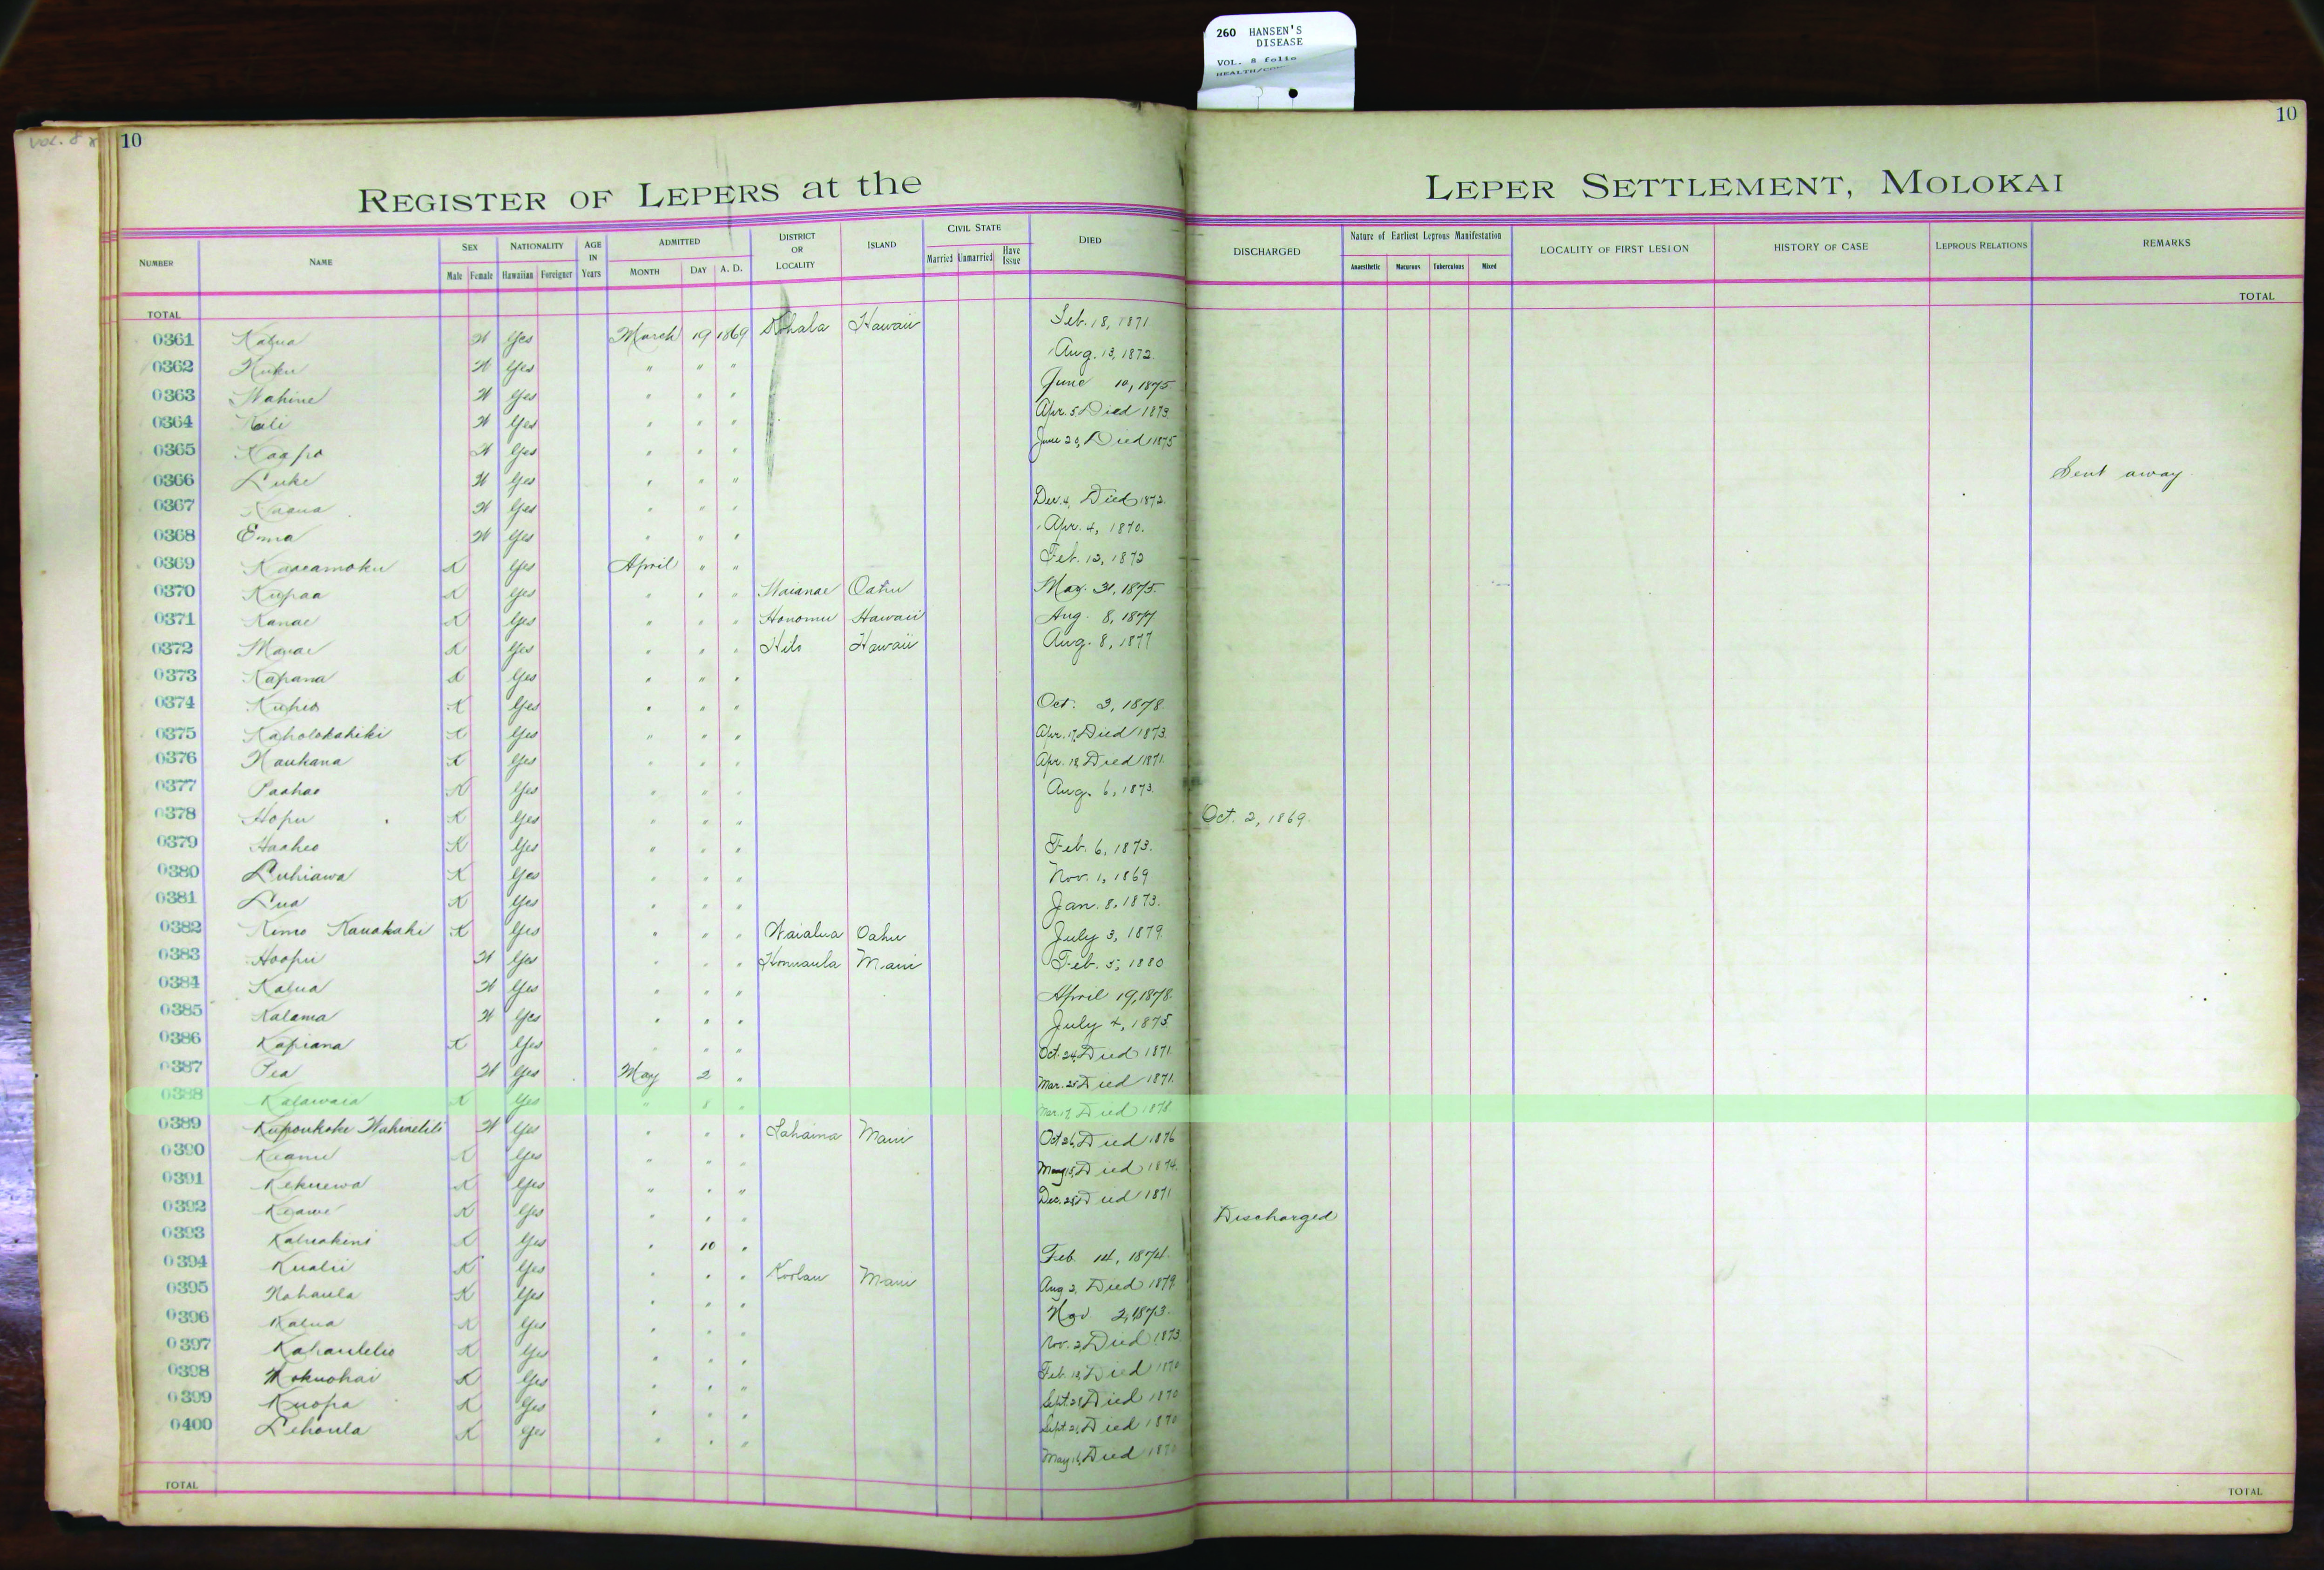 260 HANSEN'S
DISEASE
VOL. 8 folio
VOL. 8
10
10
REGISTER OF LEPERS at the LEPER SETTLEMENT, MOLOKAI
NUMBER NAME SEX NATIONALITY AGE IN Years ADMITTED DISTRICT OR LOCALITY ISLAND CIVIL STATE DIED DISCHARGED Nature of Earliest Leprous Manifestation LOCALITY OF FIRST LESION HISTORY OF CASE LEPROUS RELATIONS REMARKS
Male Female Hawaiian Foreigner MONTH DAY A. D. Married Unmarried Have Issue Anaesthetic Macurous Tuberculous Mixed
TOTAL TOTAL
0361 Kalua W Yes March 19 1869 Kohala Hawaii Feb. 18, 1871
0362 Kuku W Yes " " " Aug. 13, 1872.
0363 Wahine W Yes " " " June 10, 1875
0364 Kali W Yes " " " Apr. 5 Died 1873.
0365 Kaapo W Yes " " " June 29, Died 1875
0366 Luke W Yes " " " Sent away
0367 W Yes " " " Dec. 4, Died 1872.
0368 Ema W Yes " " " Apr. 4, 1870.
0369 Kaaeamoku K Yes April " " Feb. 12, 1872
0370 Kupaa K Yes " " " Waianae Oahu May. 31, 1875.
0371 Kanae K Yes " " " Honomu Hawaii Aug. 8, 1877
0372 K Yes " " " Hilo Hawaii Aug. 8, 1877
0373 Kapana K Yes " " "
0374 Kuheo K Yes " " " Oct. 3, 1878.
0375 Kaholokahiki K Yes " " " Apr. 17, Died 1873.
0376 Naukana K Yes " " " Apr. 18 Died 1871.
0377 Paahao K Yes " " " Aug. 6, 1873.
0378 Hopu K Yes " " " Oct. 2, 1869.
0379 Haaheo K Yes " " " Feb. 6, 1873.
0380 Luhiawa K Yes " " " Nov. 1, 1869
0381 Lua K Yes " " " Jan. 8, 1873.
0382 Kimo Kauakahi K Yes " " " Waialua Oahu July 3, 1879.
0383 Hoopii W Yes " " " Honuaula Maui Feb. 5, 1880
0384 Kalua W Yes " " " April 19, 1878.
0385 Kalama W Yes " " " July 4, 1875
0386 Kapiana K Yes " " " Oct. 24, Died 1871.
0387 Pea W Yes May 2 " Mar. 25 Died 1871.
0388 Kalawaia K Yes " 8 " Mar. 17, Died 1878
0389 Kupoukoke Wahinelili W Yes " " " Lahaina Maui Oct 26, Died 1876
0390 Keanu K Yes " " " May 15, Died 1874.
0391 Kekuewa K Yes " " " Dec. 28, Died 1871
0392 Keawe K Yes " " " Discharged
0393 Kaluakini K Yes " 10 " Feb. 14, 1874.
0394 Kualii K Yes " " " Koolau Maui Aug 2, Died 1879.
0395 Nahaula K Yes " " " Nov 2, 1873.
0396 Kalua K Yes " " " Nov. 2, Died 1873
0397 Kahaulelio K Yes " " " Feb. 18, Died 1870
0398 Mokuohai K Yes " " " Sept. 28, Died 1870
0399 Kuopa K Yes " " " Sept. 21, Died 1870
0400 Lehoula K Yes " " " May 16, Died 1870
TOTAL TOTAL